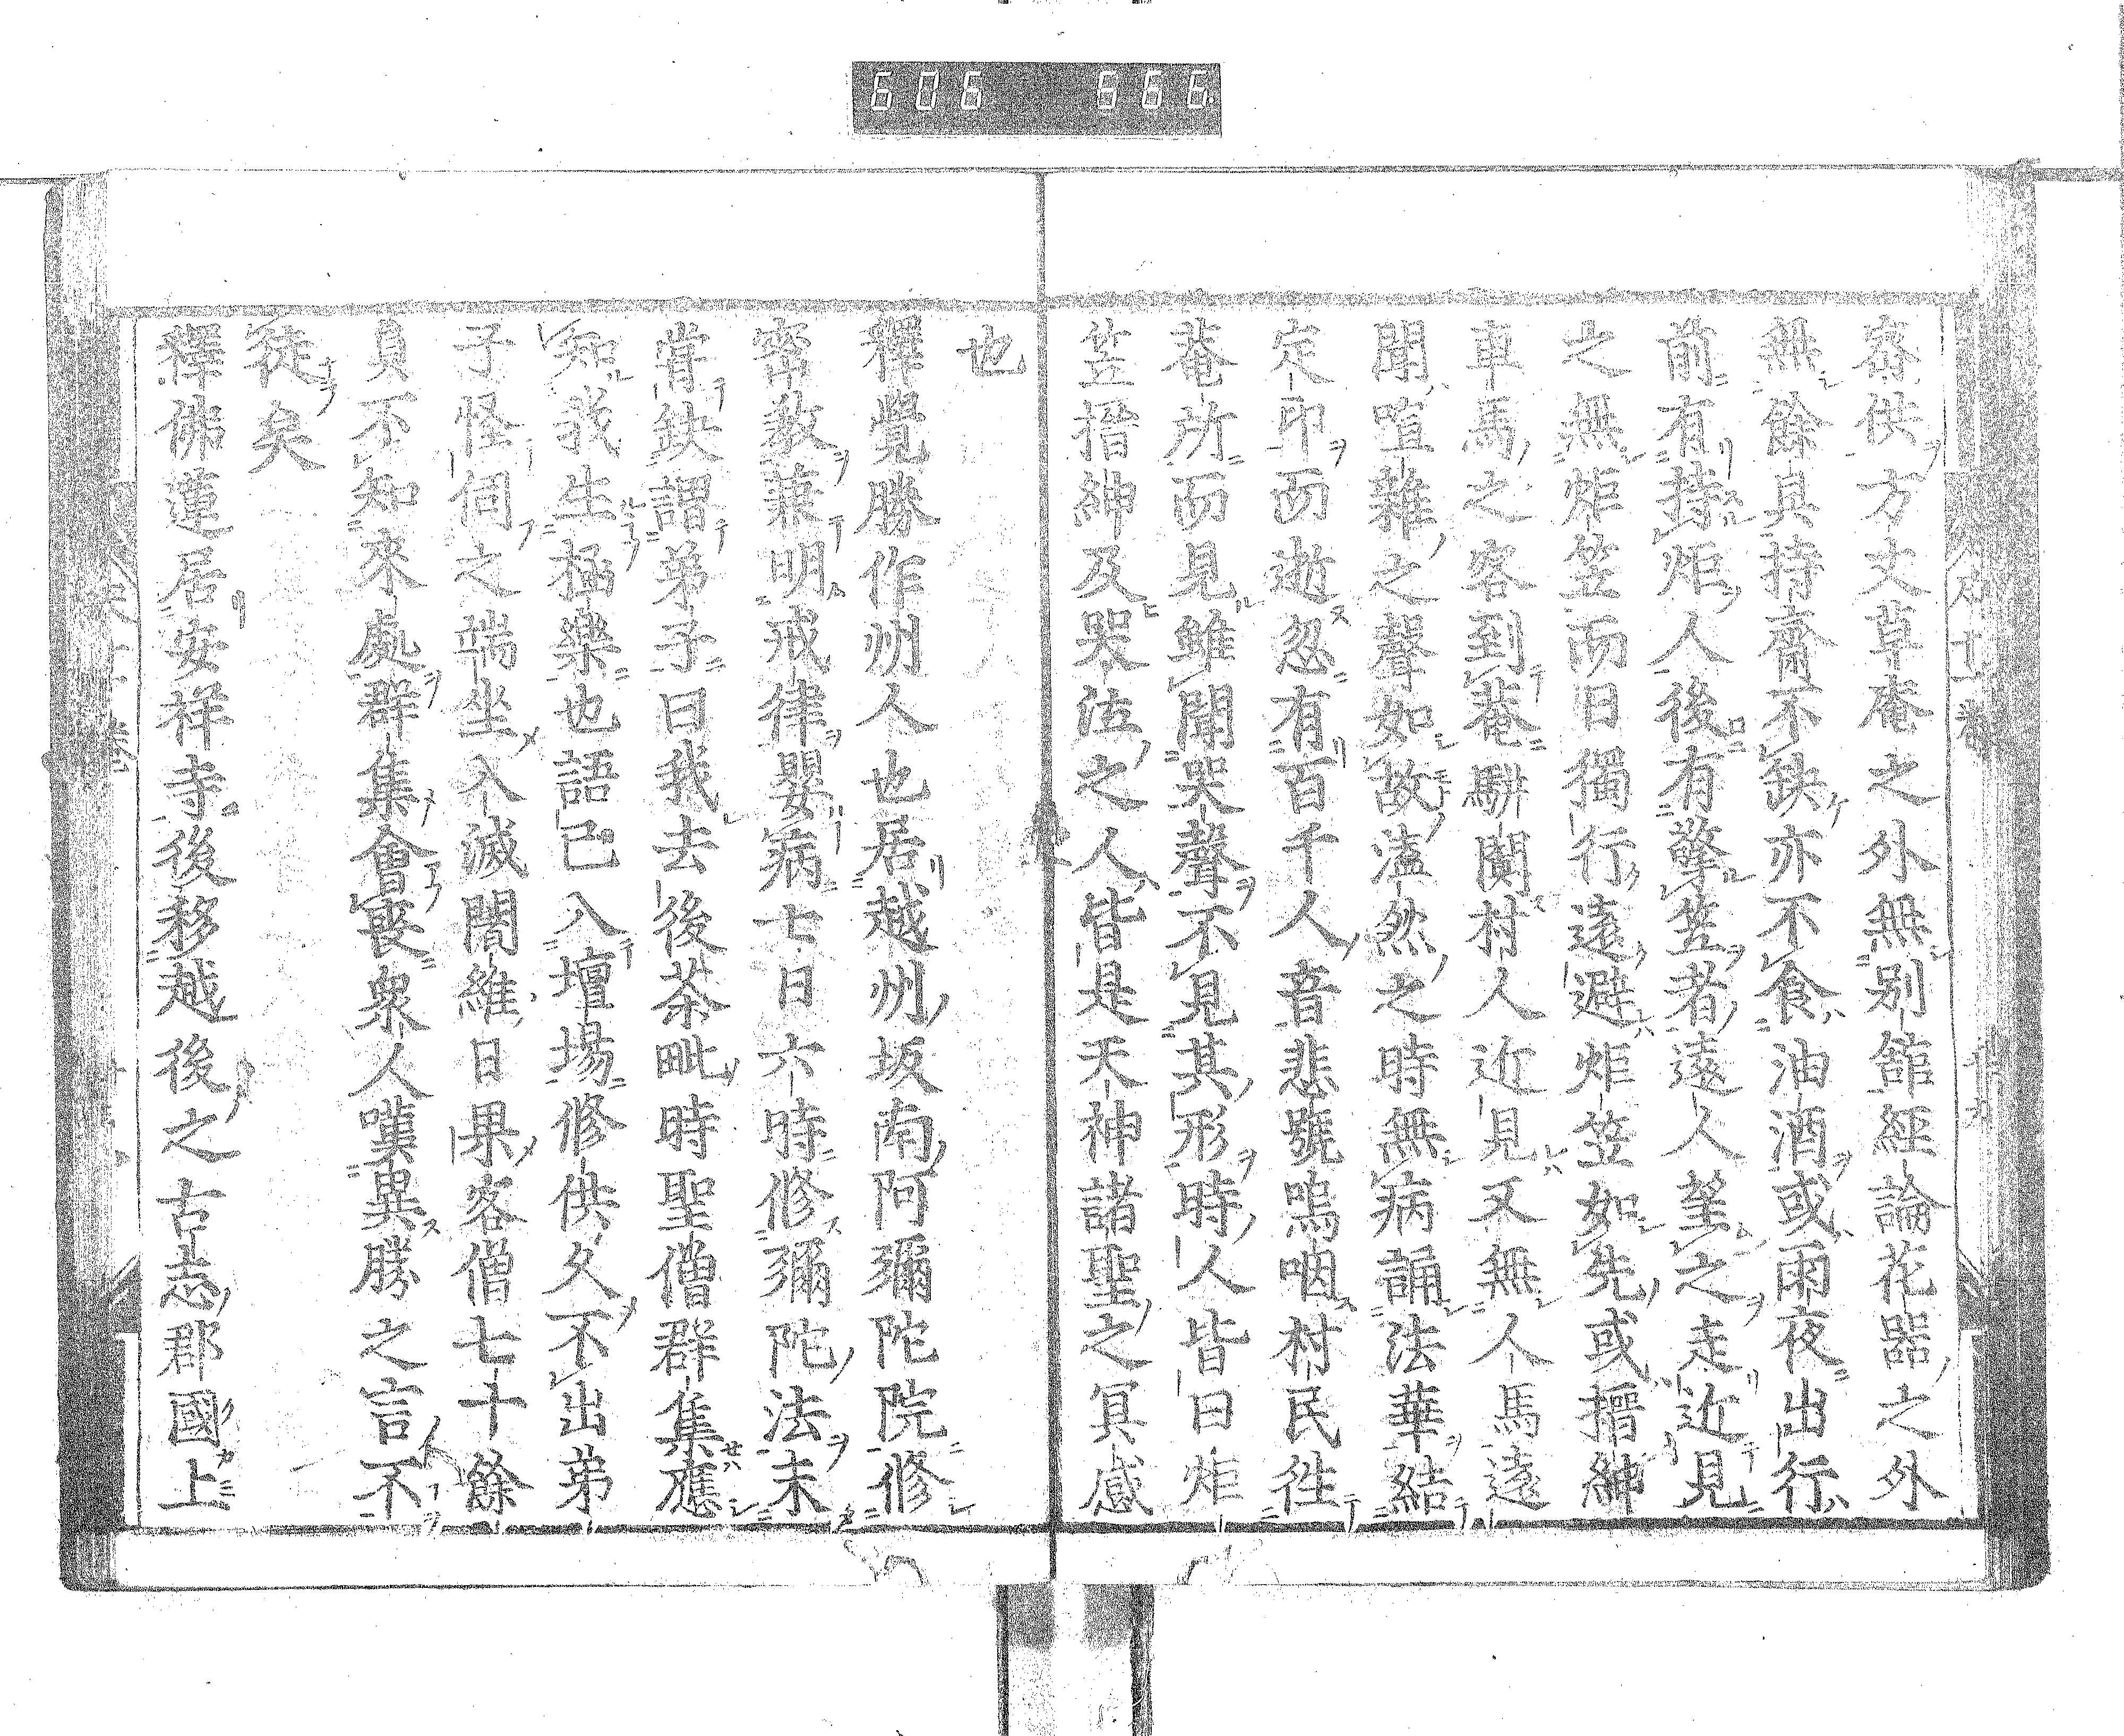 606 666
密供方丈草庵之外無別館經論花器之外
無餘具持齋不缺亦不食油酒或雨夜出行
前有持炬人後有擎笠者遠人望之走近見
之無炬笠而日獨行遠避炬笠如先或搢紳
車馬之客到菴騈闐村人近見又無人馬遠
聞喧雜之聲如故溘然之時無病誦法華結
定印而逝忽有百千人音悲號嗚咽村民徃
菴所而見雖聞哭聲不見其形時人皆曰炬
笠搢紳及哭泣之人皆是天神諸聖之冥感
也
釋覺勝作州人也居越州坂南阿彌陀院修
密教兼明戒律嬰病七日六時修彌陀法未
甞缺謂弟子曰我去後茶毗時聖僧群集應
知我生極樂也語已入壇場修供久不出弟
子怪伺之端坐入滅闍維日果客僧七十餘
員不知來處群集會喪衆人嘆異勝之言不
徒矣
釋佛蓮居安祥寺後移越後之古志郡國上